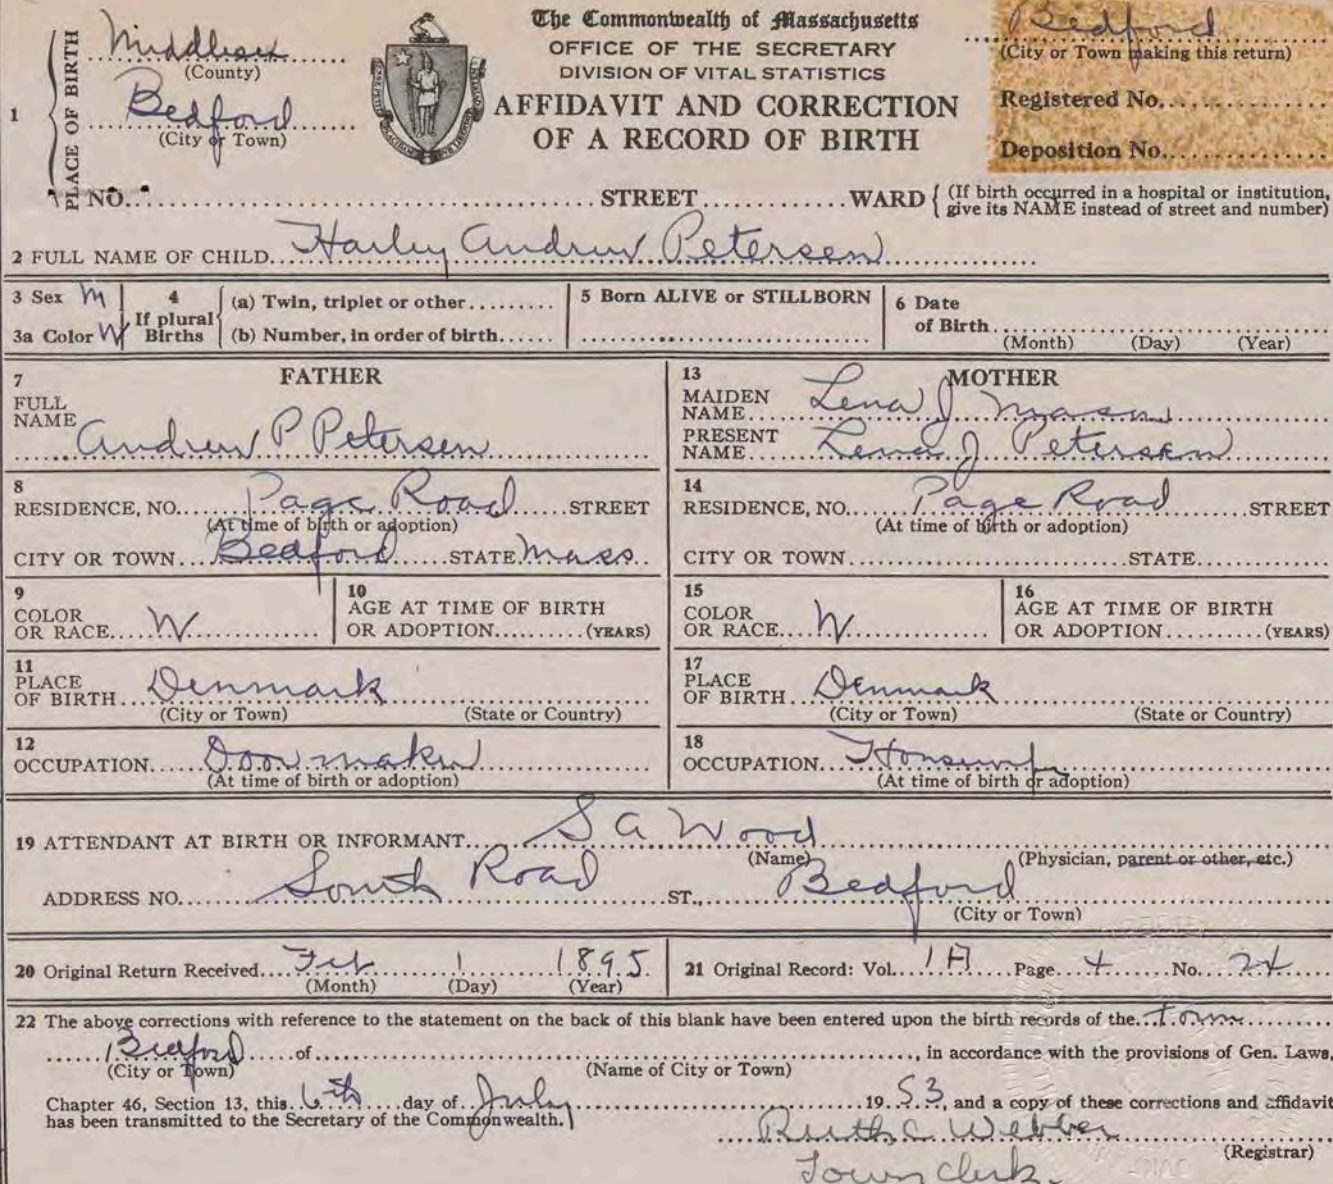 The Commonwealth of Massachusetts
OFFICE OF THE SECRETARY
DIVISION OF VITAL STATISTICS
AFFIDAVIT AND CORRECTION
OF A RECORD OF BIRTH
1 PLACE OF BIRTH
Middlesex
(County)
Bedford
(City or Town)
Bedford
(City or Town making this return)
Registered No.
Deposition No.
NO. STREET WARD (If birth occurred in a hospital or institution,
give its NAME instead of street and number)
2 FULL NAME OF CHILD Harley Andrew Petersen
3 Sex M
3a Color W
4 If plural Births
(a) Twin, triplet or other
(b) Number, in order of birth
5 Born ALIVE or STILLBORN
6 Date of Birth
(Month) (Day) (Year)
FATHER
7 FULL NAME Andrew P Petersen
8 RESIDENCE, NO. Page Road STREET
(At time of birth or adoption)
CITY OR TOWN Bedford STATE Mass
9 COLOR OR RACE W
10 AGE AT TIME OF BIRTH OR ADOPTION (YEARS)
11 PLACE OF BIRTH Denmark
(City or Town) (State or Country)
12 OCCUPATION Door maker
(At time of birth or adoption)
MOTHER
13 MAIDEN NAME Lena J Mason
PRESENT NAME Lena J Petersen
14 RESIDENCE, NO. Page Road STREET
(At time of birth or adoption)
CITY OR TOWN STATE
15 COLOR OR RACE W
16 AGE AT TIME OF BIRTH OR ADOPTION (YEARS)
17 PLACE OF BIRTH Denmark
(City or Town) (State or Country)
18 OCCUPATION
(At time of birth or adoption)
19 ATTENDANT AT BIRTH OR INFORMANT S A Wood
(Name) (Physician, parent or other, etc.)
ADDRESS NO. South Road ST., Bedford
(City or Town)
20 Original Return Received Feb 1 1895
(Month) (Day) (Year)
21 Original Record: Vol. 1A Page 4 No. 24
22 The above corrections with reference to the statement on the back of this blank have been entered upon the birth records of the town
Bedford of , in accordance with the provisions of Gen. Laws,
(City or Town) (Name of City or Town)
Chapter 46, Section 13, this 6th day of July 1953, and a copy of these corrections and affidavit
has been transmitted to the Secretary of the Commonwealth.
Ruth C. Webber
(Registrar)
Town Clerk.